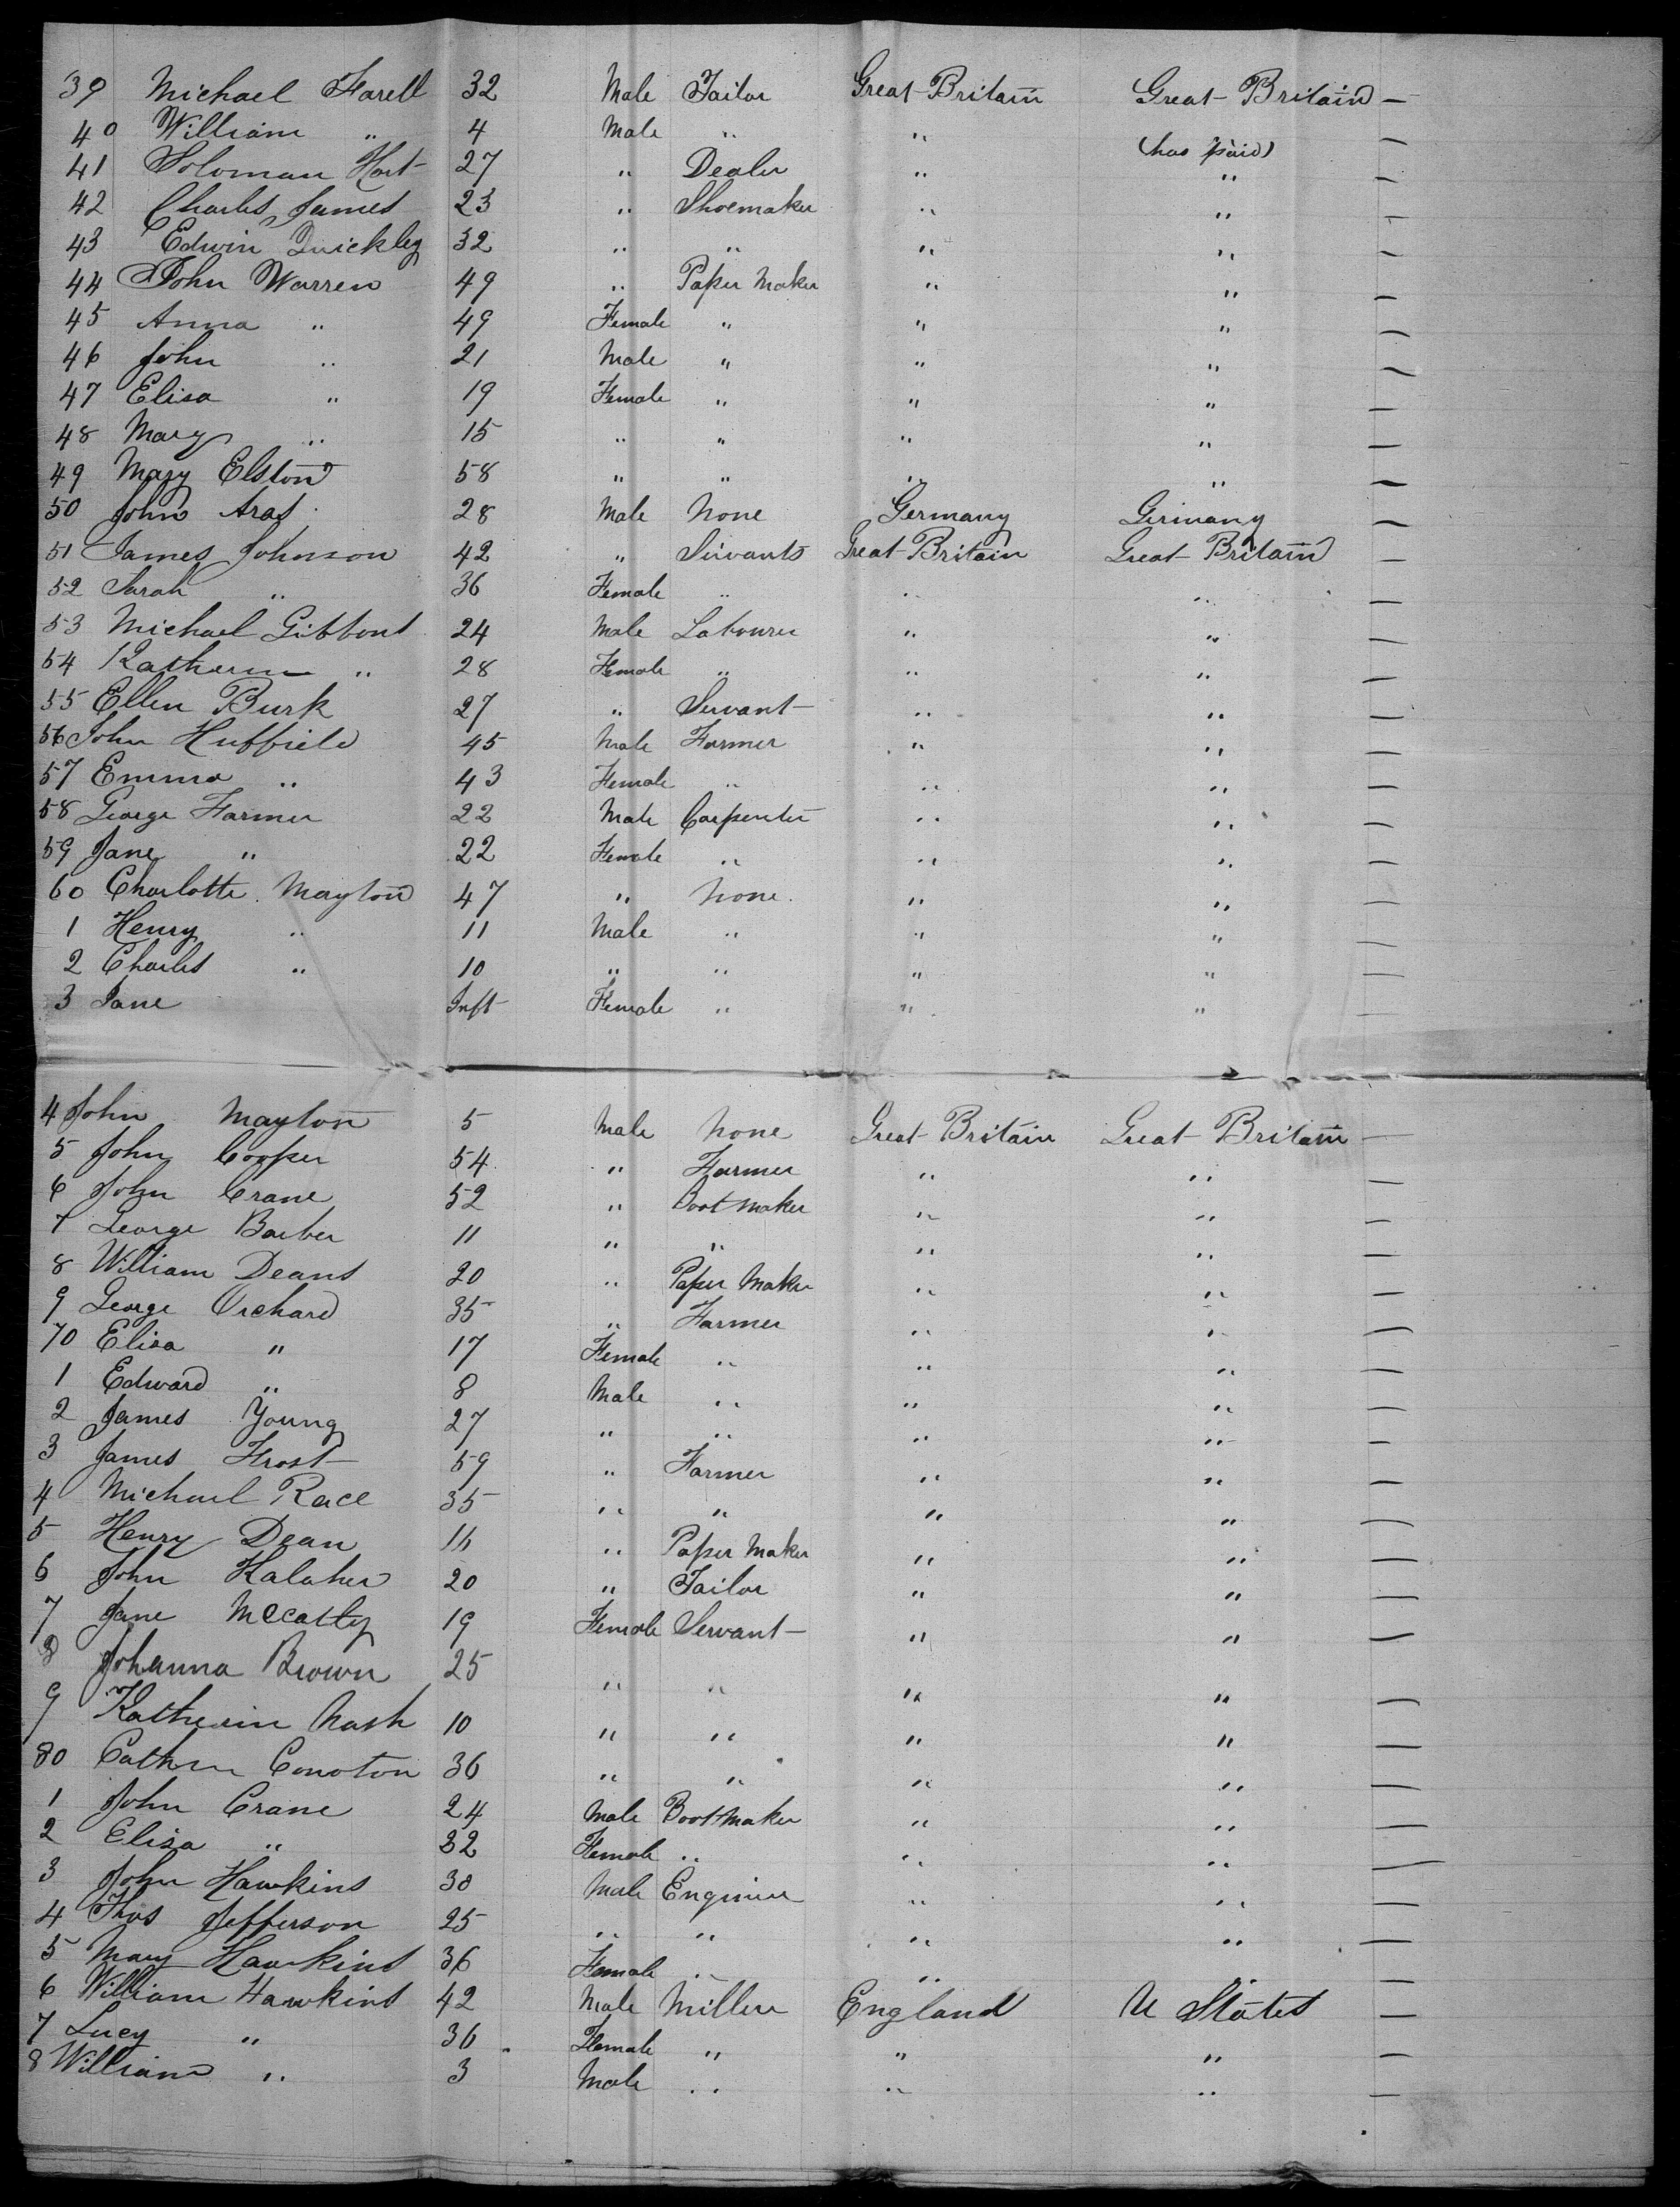 39 Michael Farell 32 Male Tailor Great Britain Great Britain —
40 William " 4 Male " " (has paid) —
41 Soloman Hart 27 " Dealer " " —
42 Charles James 23 " Shoemaker " " —
43 Edwin Quickley 32 " " " " —
44 John Warren 49 " Paper Maker " " —
45 Anna " 49 Female " " " —
46 John " 21 Male " " " —
47 Elisa " 19 Female " " " —
48 Mary " 15 " " " " —
49 Mary Elston 58 " " " " —
50 John Aras 28 Male None Germany Germany —
51 James Johnson 42 " Servants Great Britain Great Britain —
52 Sarah " 36 Female " " " —
53 Michael Gibbons 24 Male Labourer " " —
54 Katherin " 28 Female " " " —
55 Ellen Burk 27 " Servant " " —
56 John Huffield 45 Male Farmer " " —
57 Emma " 43 Female " " " —
58 George Farmer 22 Male Carpenter " " —
59 Jane " 22 Female " " " —
60 Charlotte Mayton 47 " None " " —
1 Henry " 11 Male " " " —
2 Charles " 10 " " " " —
3 Jane Inft Female " " " —
4 John Mayton 5 Male None Great Britain Great Britain —
5 John Cooper 54 " Farmer " " —
6 John Crane 52 " Boot Maker " " —
7 George Barber 11 " " " " —
8 William Deans 20 " Paper Maker " " —
9 George Orchard 35 " Farmer " " —
70 Elisa " 17 Female " " " —
1 Edward " 8 Male " " " —
2 James Young 27 " " " " —
3 James Frost 59 " Farmer " " —
4 Michael Race 35 " " " " —
5 Henry Dean 16 " Paper Maker " " —
6 John Kalaher 20 " Tailor " " —
7 Jane McCatty 19 Female Servant " " —
8 Johanna Brown 25 " " " " —
9 Katherin Nash 10 " " " " —
80 Conoton 36 " " " " —
1 John Crane 24 Male Boot Maker " " —
2 Elisa " 32 Female " " " —
3 John Hawkins 30 Male Enginier " " —
4 Thos Jefferson 25 " " " " —
5 Mary Hawkins 36 Female " " " —
6 William Hawkins 42 Male Miller England U States —
7 Lucy " 36 Female " " " —
8 William " 3 Male " " " —